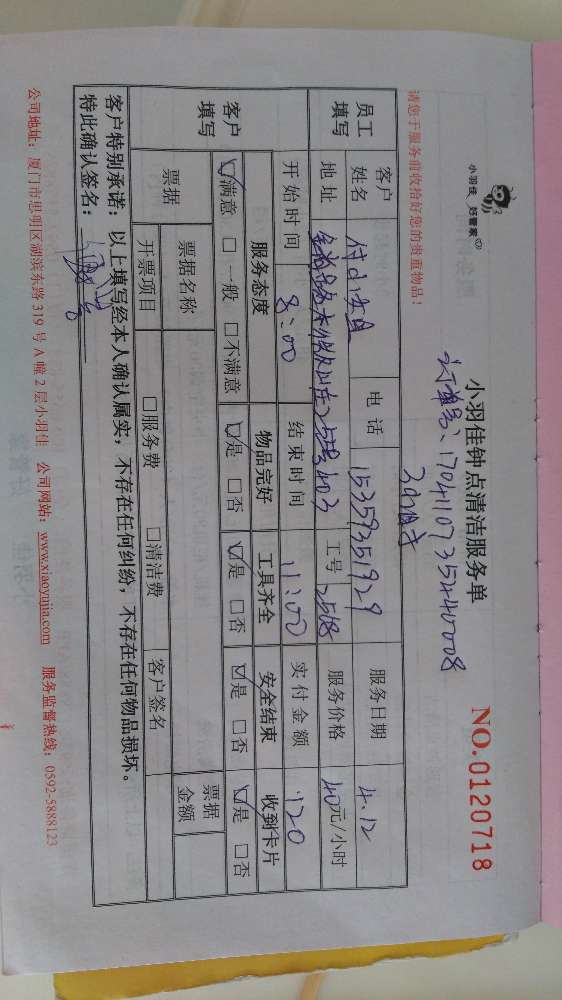 小羽佳 好管家
小羽佳钟点清洁服务单
NO.0120718
订单号:17041107352440008
3小时
请您于服务前收拾好您的贵重物品!
员工填写 客户姓名 付小姐 电话 15359351929 服务日期 4.12
地址 25号403 工号 2518 服务价格 40元/小时
开始时间 8:00 结束时间 11:00 实付金额 120
客户填写 服务态度 物品完好 工具齐全 安全结束 收到卡片
☑满意 □一般 □不满意 ☑是 □否 ☑是 □否 ☑是 □否 ☑是 □否
票据 票据名称 票据金额
开票项目 □服务费 □清洁费 客户签名
客户特别承诺:以上填写经本人确认属实,不存在任何纠纷,不存在任何物品损坏。
特此确认签名:
公司地址:厦门市思明区湖滨东路 319 号 A 幢 2 层小羽佳 公司网站:www.xiaoyujia.com 服务监督热线:0592-5888123